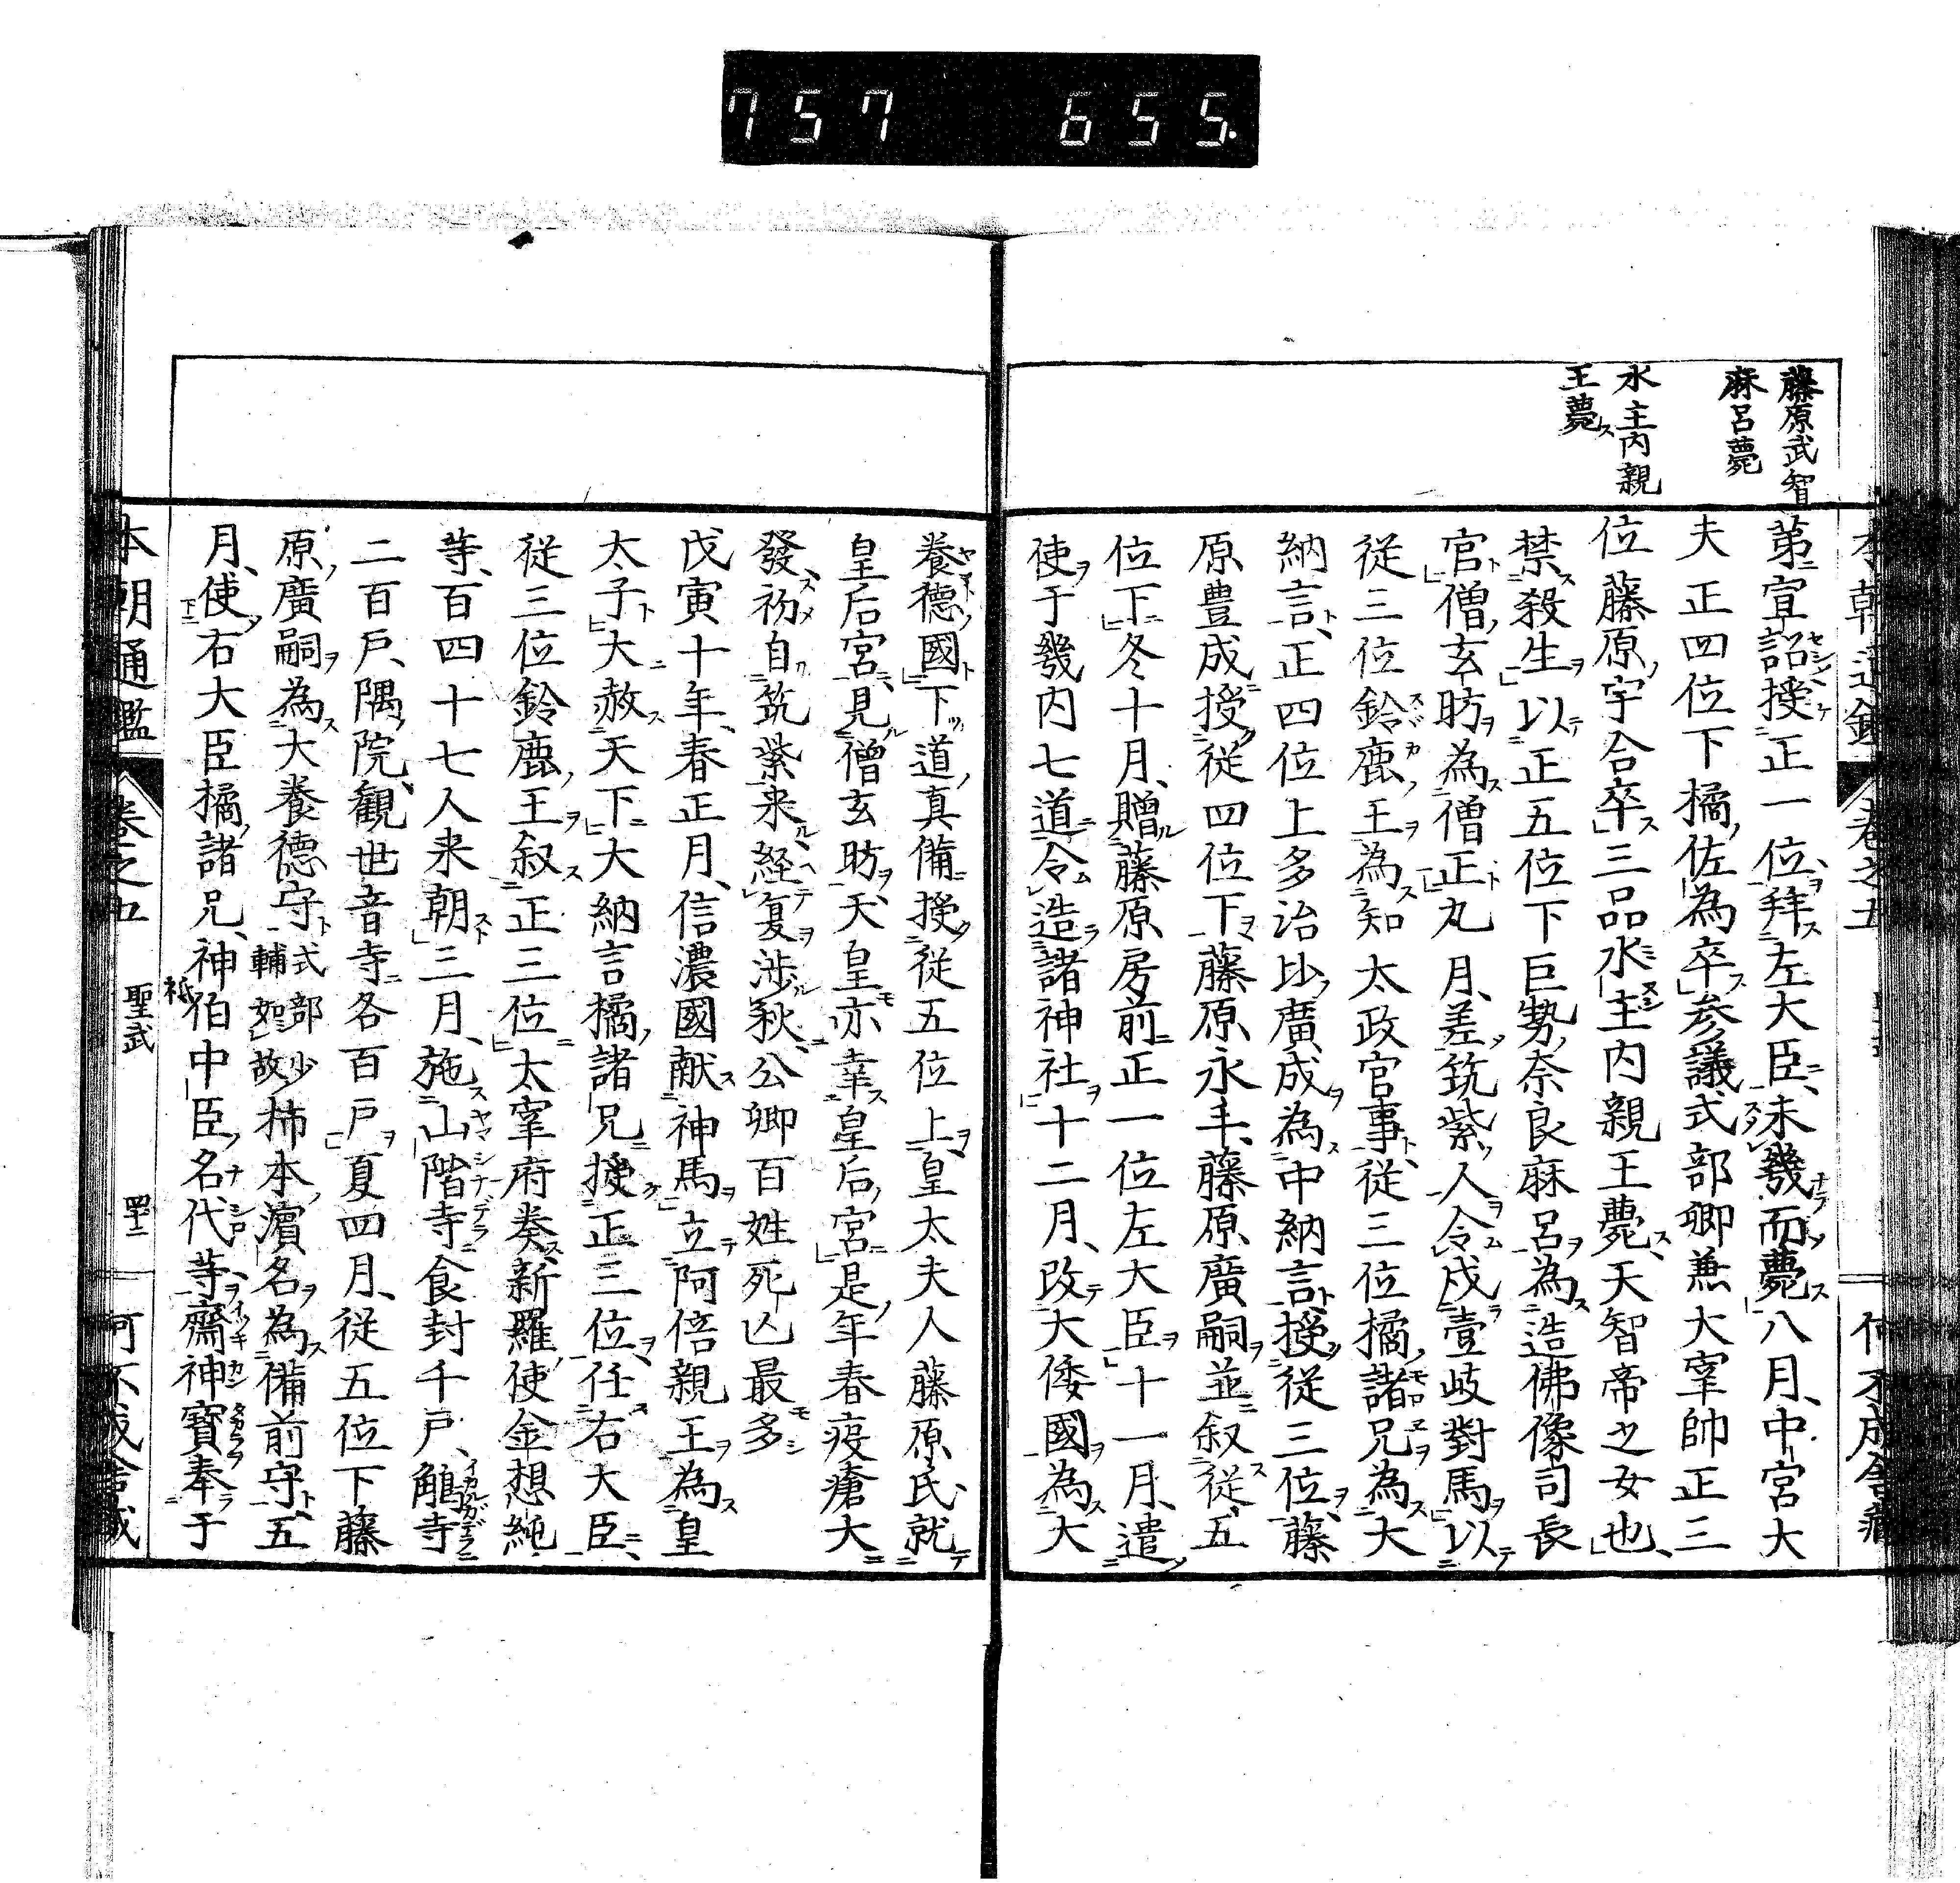 757 655.
藤原武智
麻呂薨
水主内親
王薨ス
第宣詔授正一位拜左大臣未幾而薨八月中宮大
夫正四位下橘佐為卒参議式部卿兼大宰帥正三
位藤原宇合卒三品水主内親王薨天智帝之女也
禁殺生以正五位下巨勢奈良麻呂為造佛像司長
官僧玄昉為僧正九月差筑紫人令戍壹岐對馬以
從三位鈴鹿王為知太政官事從三位橘諸兄為大
納言正四位上多治比廣成為中納言授從三位藤
原豊成授從四位下藤原永手藤原廣嗣並叙從五
位下冬十月贈藤原房前正一位左大臣十一月遣
使于畿内七道令造諸神社十二月改大倭國為大
養德國下道真備授從五位上皇太夫人藤原氏就
皇后宮見僧玄昉天皇亦幸皇后宮是年春疫瘡大
發初自筑紫来経夏涉秋公卿百姓死亾最多
戊寅十年春正月信濃國献神馬立阿倍親王為皇
太子大赦天下大納言橘諸兄授正三位任右大臣
從三位鈴鹿王叙正三位太宰府奏新羅使金想純
等百四十七人来朝三月施山階寺食封千戸鵤寺
二百戸隅院観世音寺各百戸夏四月從五位下藤
原廣嗣為大養德守式部少輔如故柿本濱名為備前守五
月使右大臣橘諸兄神祇伯中臣名代等齋神寶奉于
本朝通鑑 卷之五 聖武 四十二